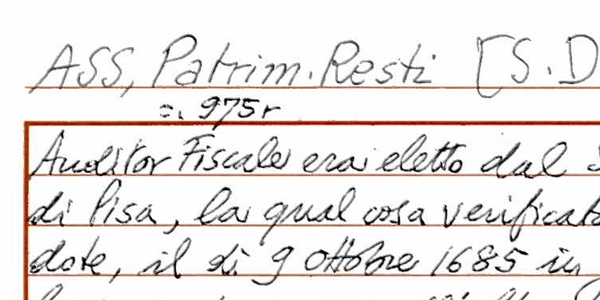 ASS, Patrim. Resti [S. D
c. 975r
Auditor Fiscale era eletto dal
di Pisa, la qual cosa verificat
dote, il dì 9 ottobre 1685 in